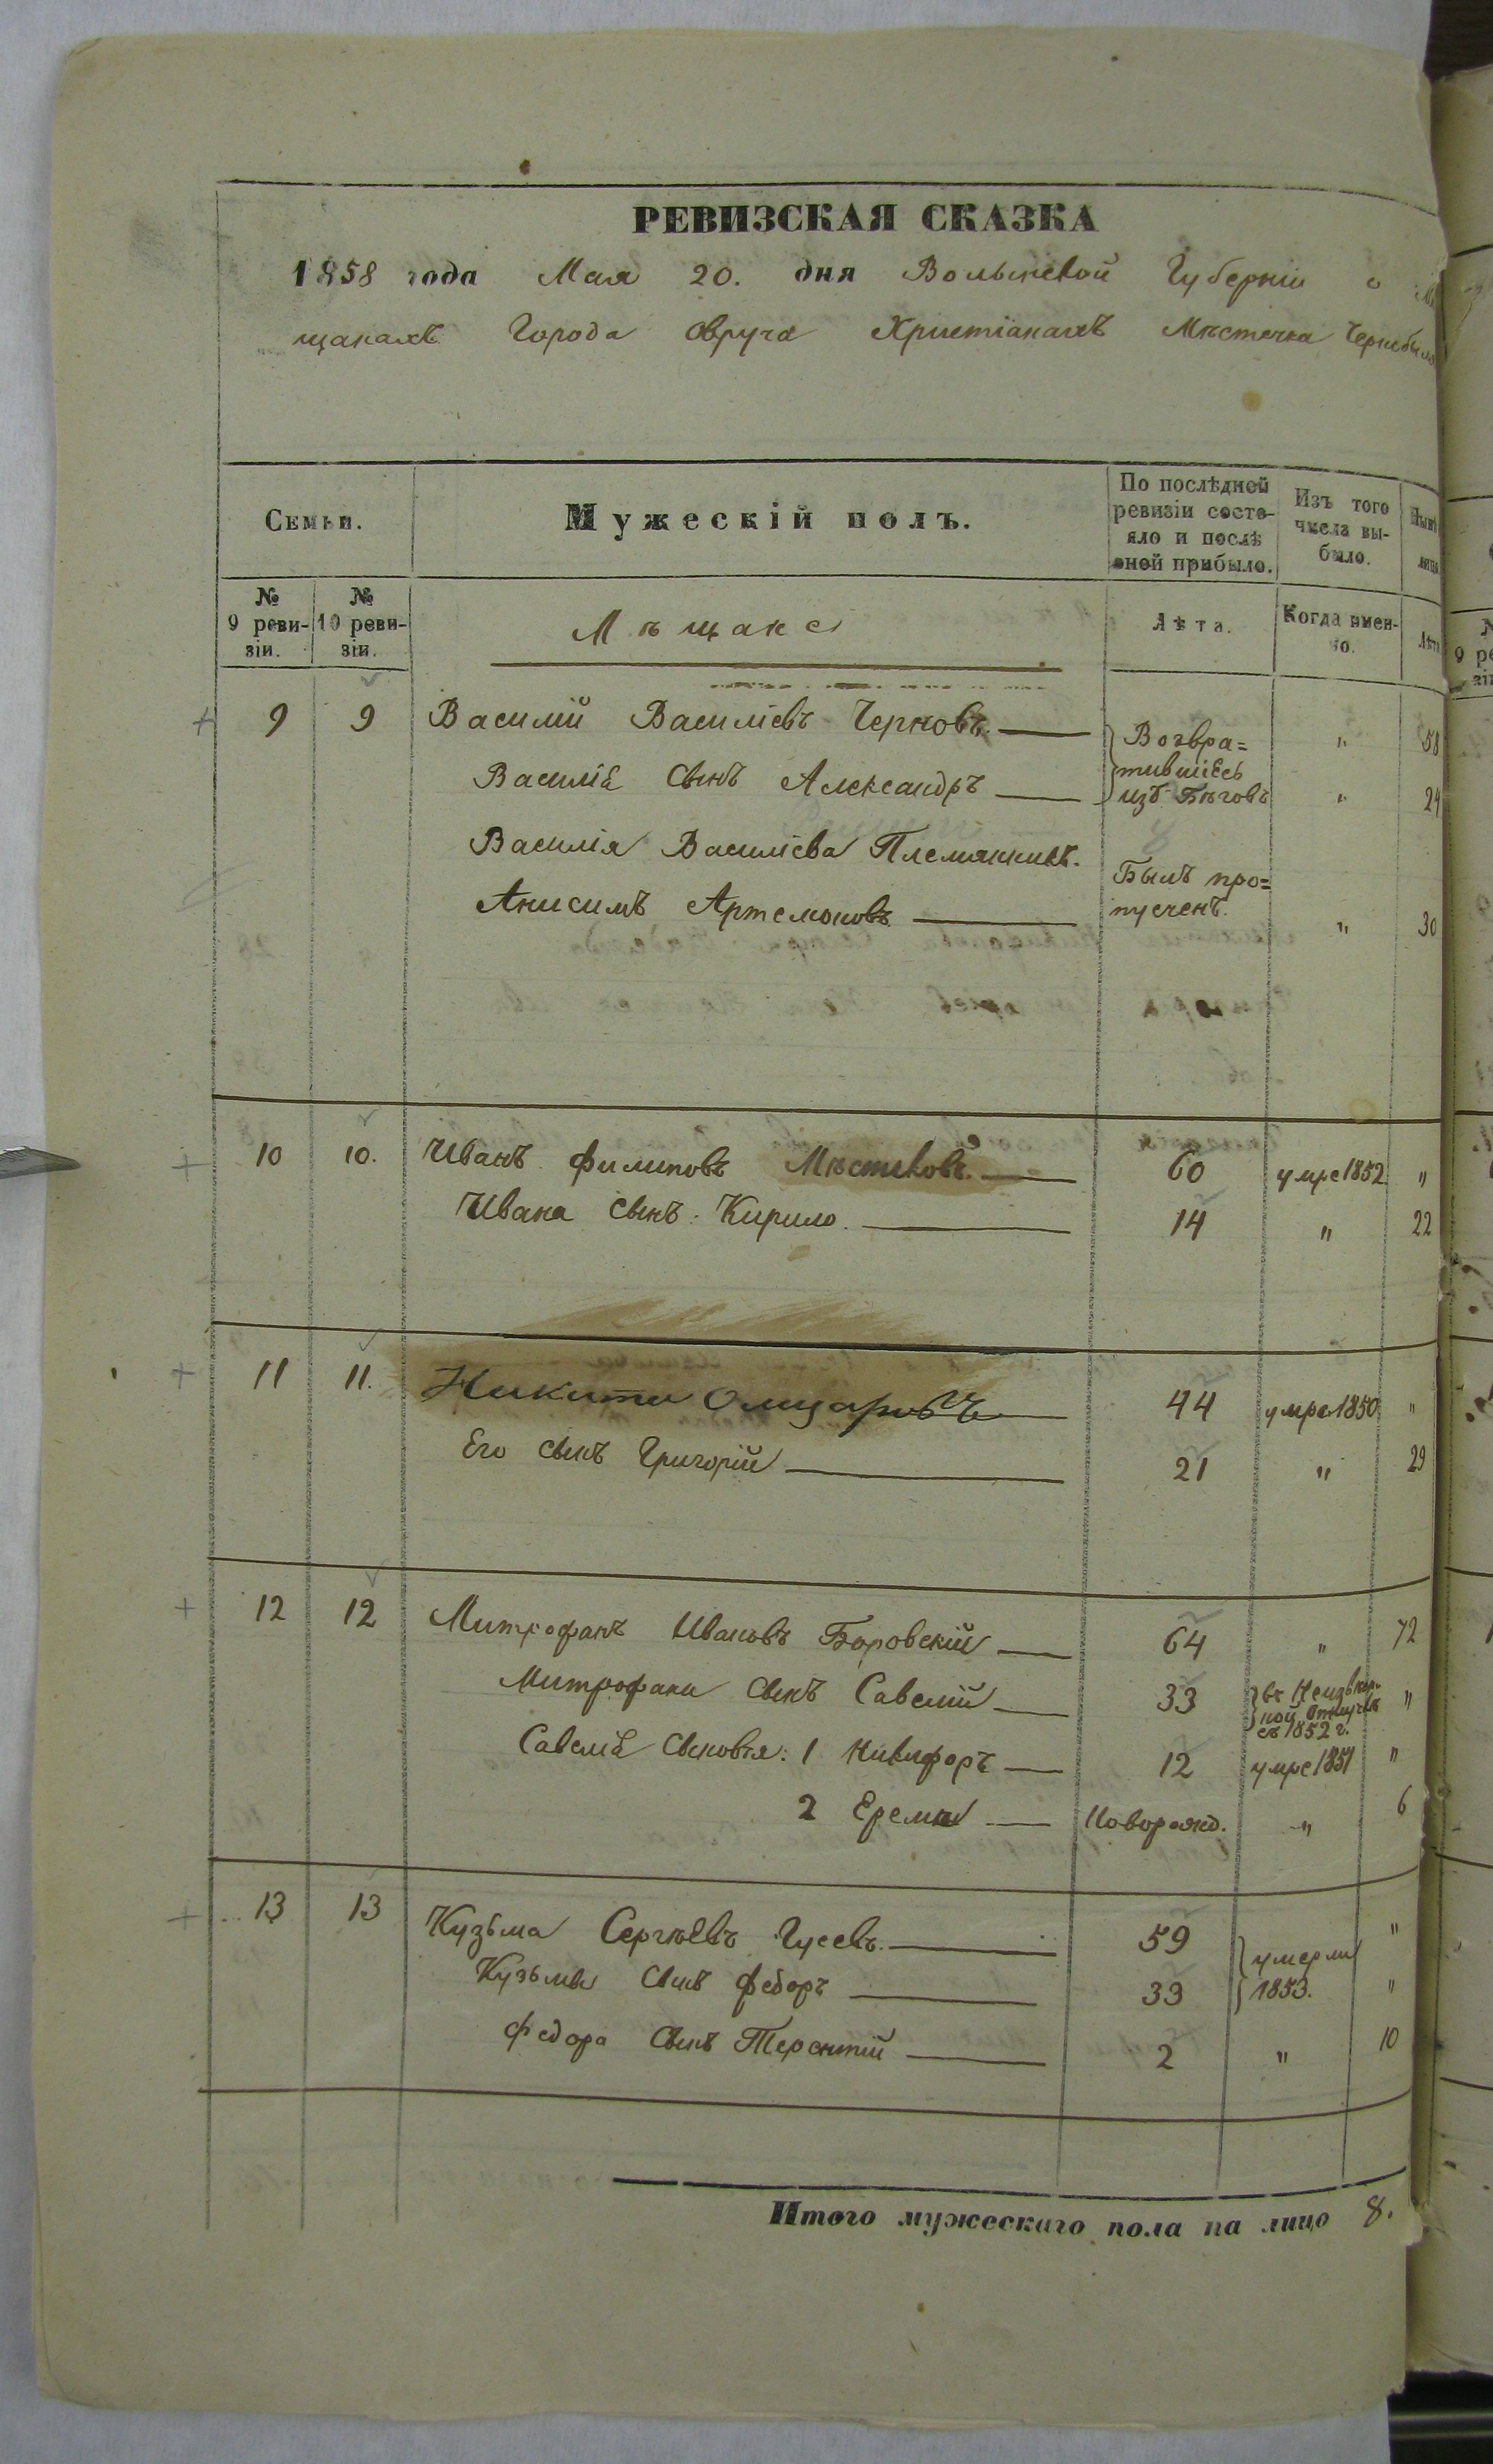 РЕВИЗСКАЯ СКАЗКА
1858 года Мая 20. дня Волынской Губерніи о мѣ
щанахъ Города Овруча Христіанахъ Мѣстечка Чернобыля
Семьи.
Мужескій полъ.
По послѣдней
ревизіи состо-
яло и послѣ
оной прибыло.
Изъ того
числа вы-
было.
Нынѣ
лицо
№
9 реви-
зіи.
№
10 реви-
зіи.
Мѣщане
Лѣта.
Когда имен-
но.
Лѣта
9 9 Василій Васильевъ Черновъ. Возвра= " 58
Василія сынъ Александръ тившіеся из Бѣговъ " 24
Василія Василіева Племянникъ.
Анисимъ Артемоновъ Былъ про=
пущенъ. " 30
10 10. Иванъ Филиповъ Мѣстековъ. 60 умре 1852 "
Ивана сынъ: Кирило. 14 " 22
11 11. Никита 44 умре 1850 "
Его сынъ Григорій 21 " 29
12 12 Митрофанъ Ивановъ Боровскій 64 " 72
Митрофана сынъ Савелій 33 въ Неизвѣст-
ной Отлучкѣ
съ 1852 г. "
Савелія сыновья: 1 Никифоръ 12 умре 1851 "
2 Еремѣй Новорожд. " 6
13 13 Кузьма Сергѣевъ Гусевъ. 59 умерли "
Кузьмы сынъ Федоръ 33 1853. "
Федора сынъ Терентій 2 " 10
Итого мужескаго пола на лицо 8.